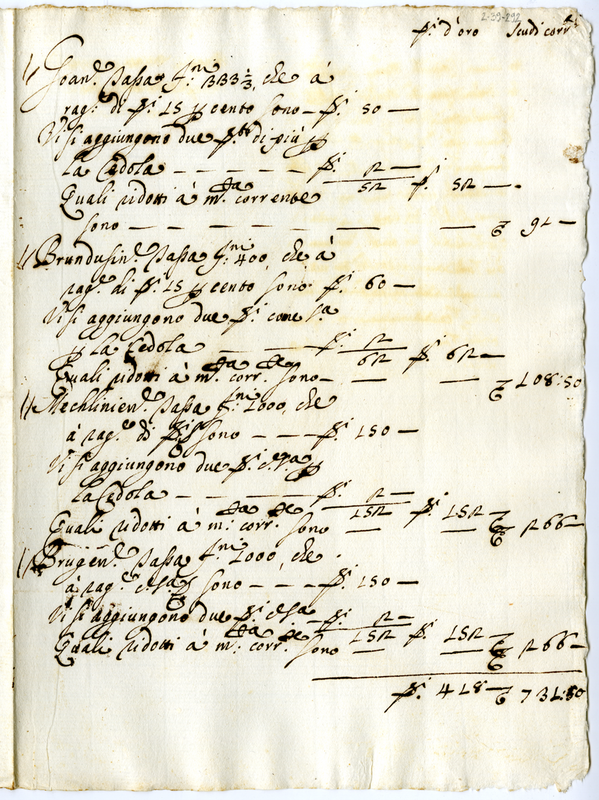 2-39-292
d'oro Scudi corr.
Joan. Tassa f. 333⅓, che à
rag. di 15 p cento sono — 50 —
Vi si aggiungono due di più p
La Cedola — — — — — 2 —
52 52 —
Quali ridotti à m. corrente
sono — — — — 91 —
Brundusin. Tassa f. 400, che à
rag. di 15 p cento sono 60 —
Vi si aggiungono due come sa
p La Cedola — — 2 —
62 62 —
Quali ridotti à m. corr. sono — — — 108:50
Mechlinien. Tassa f. 1000, che
à rag. di sono — — 150 —
Vi si aggiungono due c. sa p
La Cedola — — — 2 —
152 152 —
Quali ridotti à m. corr. sono — — 266 —
Brugen. Tassa f. 1000, che
à rag. c. sa sono — — 150 —
Vi si aggiungono due c. sa 2 —
152 152 —
Quali ridotti à m. corr. sono — — 266 —
418 — 731:50